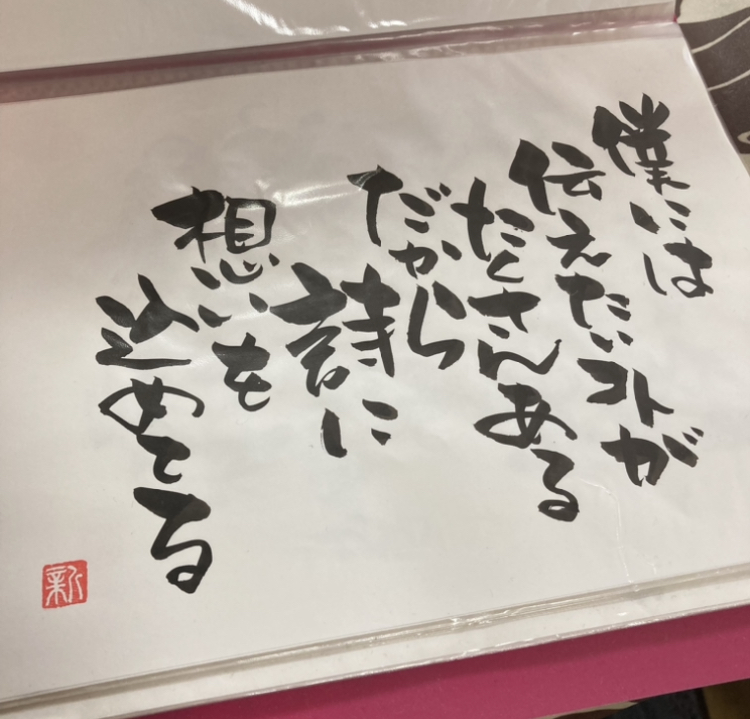 僕には
伝えたいコトが
たくさんある
だから
詩に
想いを
込めてる
新